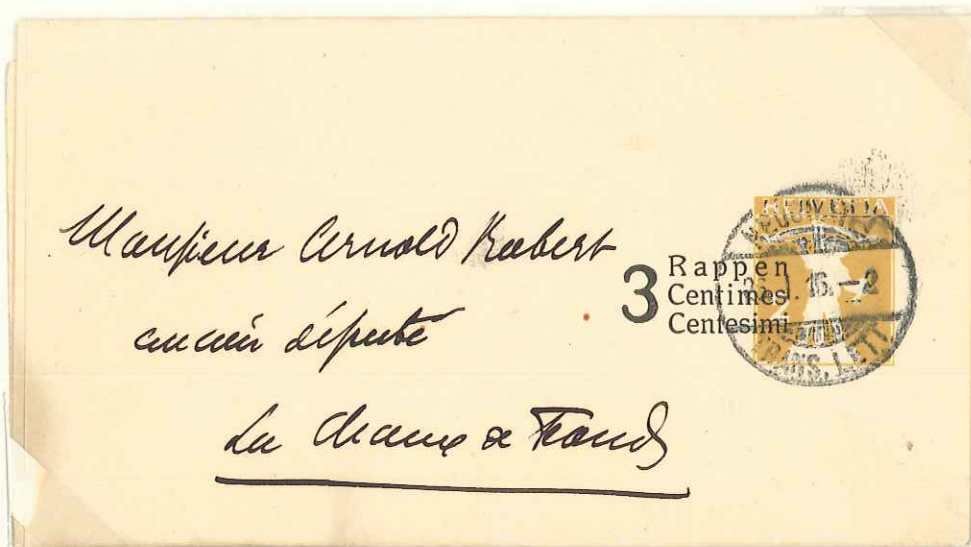 Monsieur Arnold Robert
ancien député
La Chaux de Fonds
3 Rappen
Centimes
Centesimi
HELVETIA